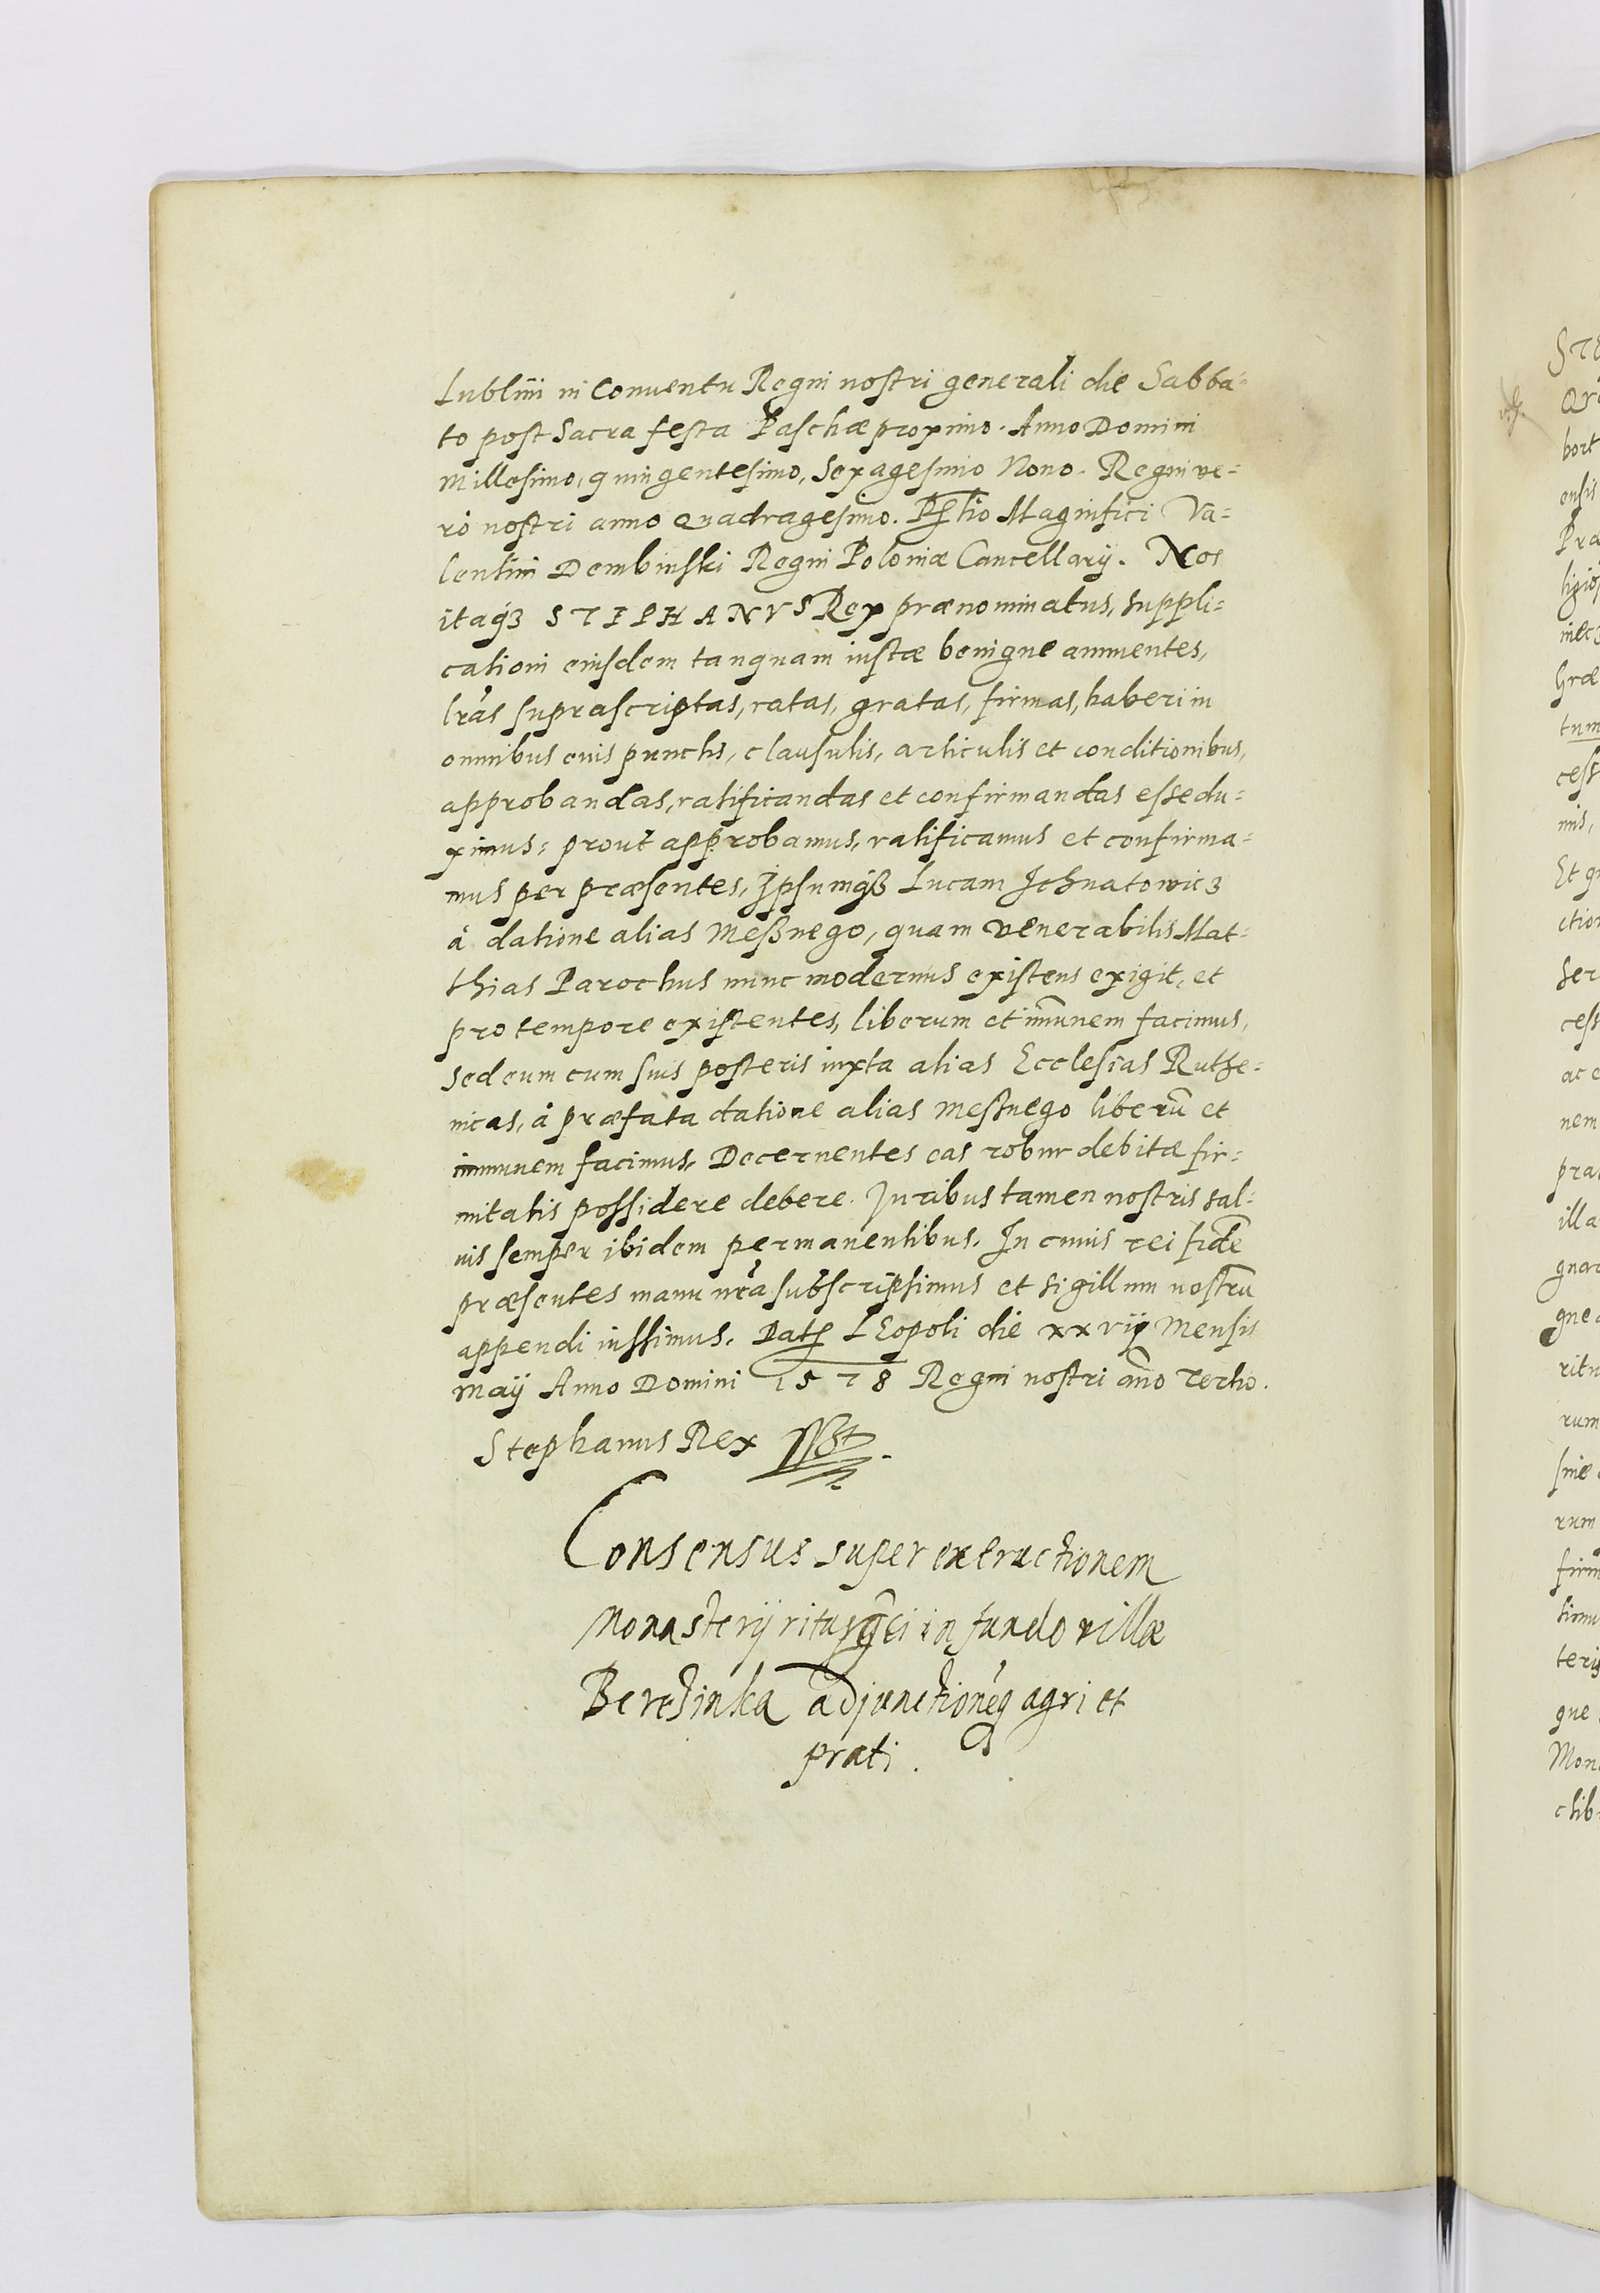 Lublini in Conventu Regni nostri generali die Sabba-
to post Sacra festa Paschæ proximo. Anno Domini
Millesimo, quingentesimo, Sexagesimo Nono. Regni ve-
rò nostri anno Quadragesimo. Magnifici Va-
lentini Dembinski Regni Poloniæ Cancellarij. Nos
itaqȝ STEPHANVS Rex prænominatus, suppli-
cationi eiusdem tanquam iustæ benigne annuentes,
lras suprascriptas, ratas, gratas, firmas, haberi in
omnibus punctis, clausulis, articulis et conditionibus,
approbandas, ratificandas et confirmandas esse du-
ximus: prout approbamus, ratificamus et confirma-
mus per præsentes, Ipsumqȝ Lucam Ichnatowicz
à datione alias Meßnego, quam venerabilis Mat-
thias Parochus nunc modernus existens exigit, et
pro tempore existentes, liberum et imunem facimus,
sed eum cum suis posteris iuxta alias Ecclesias Ruthe-
nicas, à præfata datione alias meßnego liberū et
immunem facimus, Decernentes eas robur debitæ fir-
mitatis possidere debere. Juribus tamen nostris sal-
uis semper ibidem permanentibus. In cuius rei fidē
præsentes manu nra subscripsimus et sigillum nostrū
appendi iussimus. Dat LEopoli die xxvij Mensis
Maij Anno Domini 1578 Regni nostri ano Tertio.
Stephanus Rex
Consensus super exeructionem
Monasterij ritus gci in fundo villæ
Berezinka adjunctioneq agri et
prati.